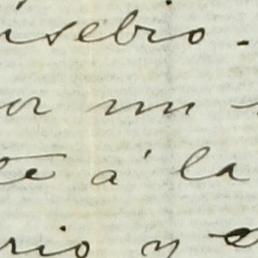 usebio.-
or un
te á la
rio y